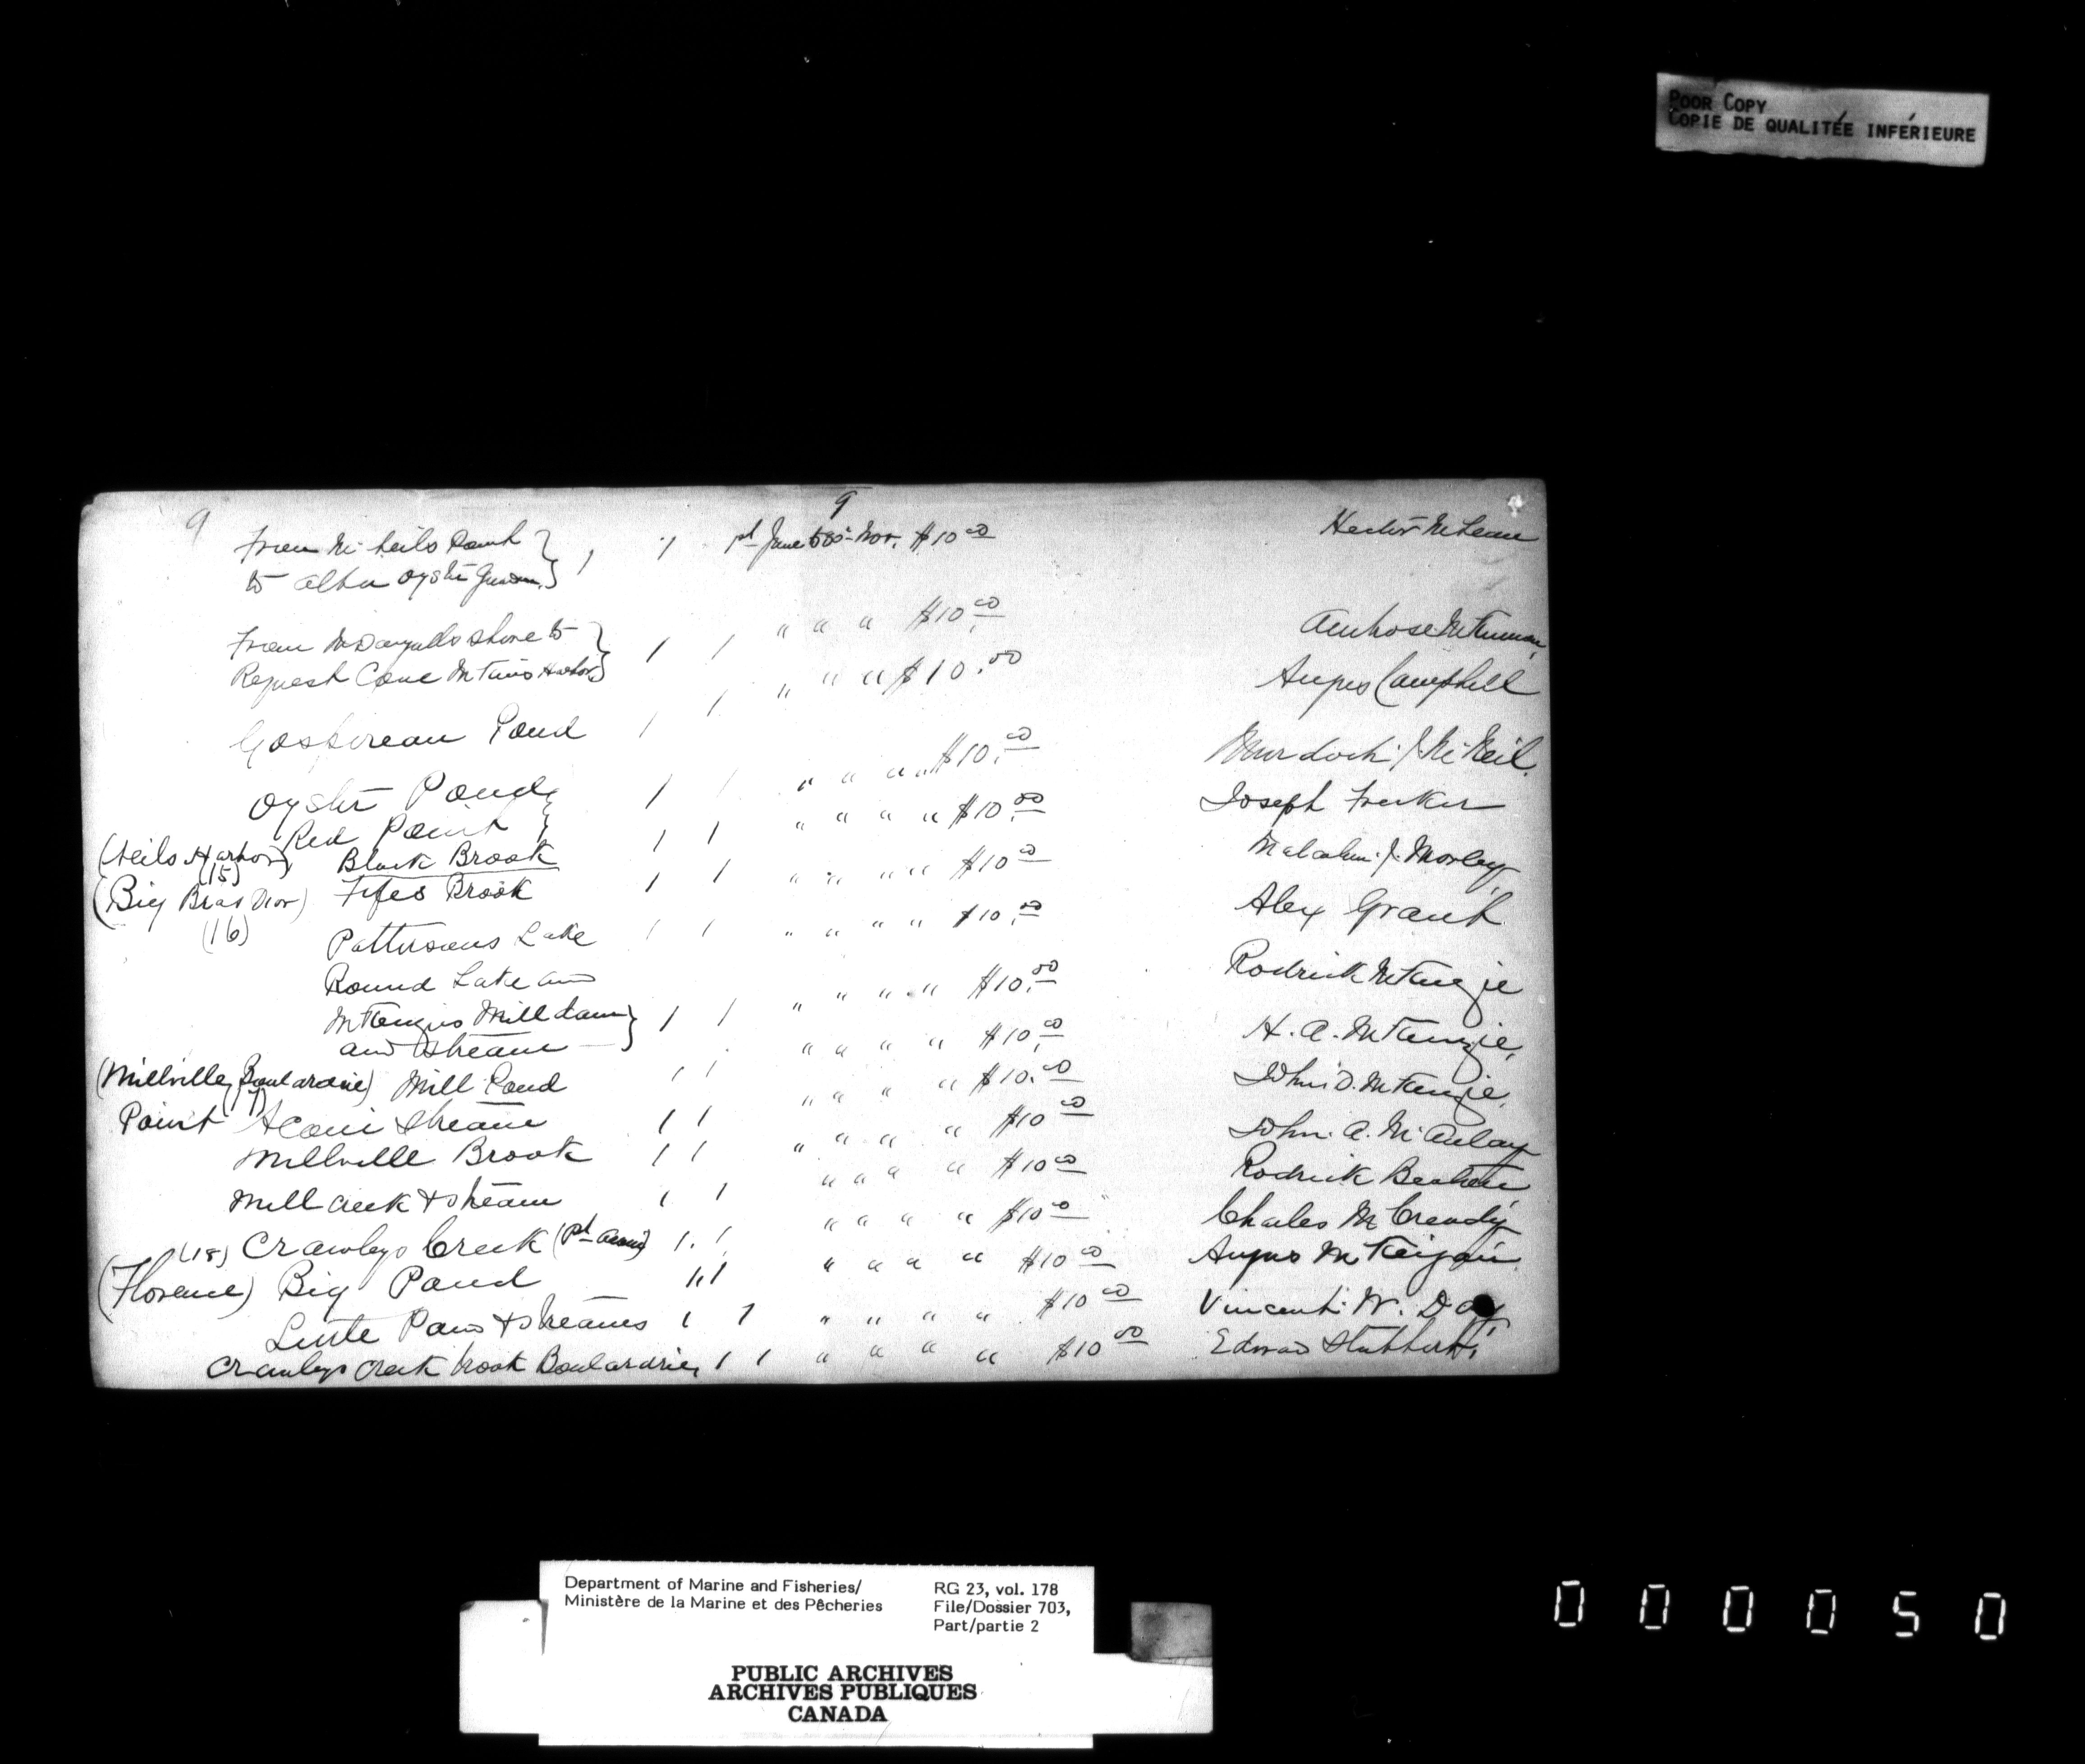 POOR COPY
COPIE DE QUALITÉE INFÉRIEURE
9 9
From McNeils Point } 1 1 1st June to Nov. $10.00 Hector McLean
to Alba Oyster
From McDougalls Shore to } 1 1 " " " $10.00 Ambrose McKinnon
Cove McKinnons Harbor
Gaspereau Pond 1 1 " " " $10.00 Angus Campbell
Oyster Pond } 1 1 " " " " $10.00 Murdock J. McNeil.
Red Point
(Neils Harbor) Black Brook 1 1 " " " " $10.00 Joseph
(15)
(Big Bras Dor) Fifes Brook 1 1 " " " " $10.00 Malcolm J. Morley
(16)
Pattersons Lake 1 1 " " " " $10.00 Alex Grant
Round Lake and
McKenzies Mill dam } 1 1 " " " " $10.00 Rodrick McKenzie
and Stream
(Millville, Boulardrie) Mill Pond 1 1 " " " " $10.00 H. A. McKenzie,
(17)
Point Aconi Stream 1 1 " " " " $10.00 John D. McKenzie,
Millville Brook 1 1 " " " " $10.00 John. A. McAulay
Mill Creek & Stream 1 1 " " " " $10.00 Rodrick
(18) Crawleys Creek (Pt Aconi) 1. 1 " " " " $10.00 Charles McCready
(Florence) Big Pond 1 1 " " " " $10.00 Angus McKeigan
Little Pond & Streams 1 1 " " " " $10.00 Vincent W. Day
Crawleys Creek Brook Boulardrie, 1 1 " " " " $10.00 Edward Stubbert,
Department of Marine and Fisheries/
Ministère de la Marine et des Pêcheries
RG 23, vol. 178
File/Dossier 703,
Part/partie 2
PUBLIC ARCHIVES
ARCHIVES PUBLIQUES
CANADA
000050